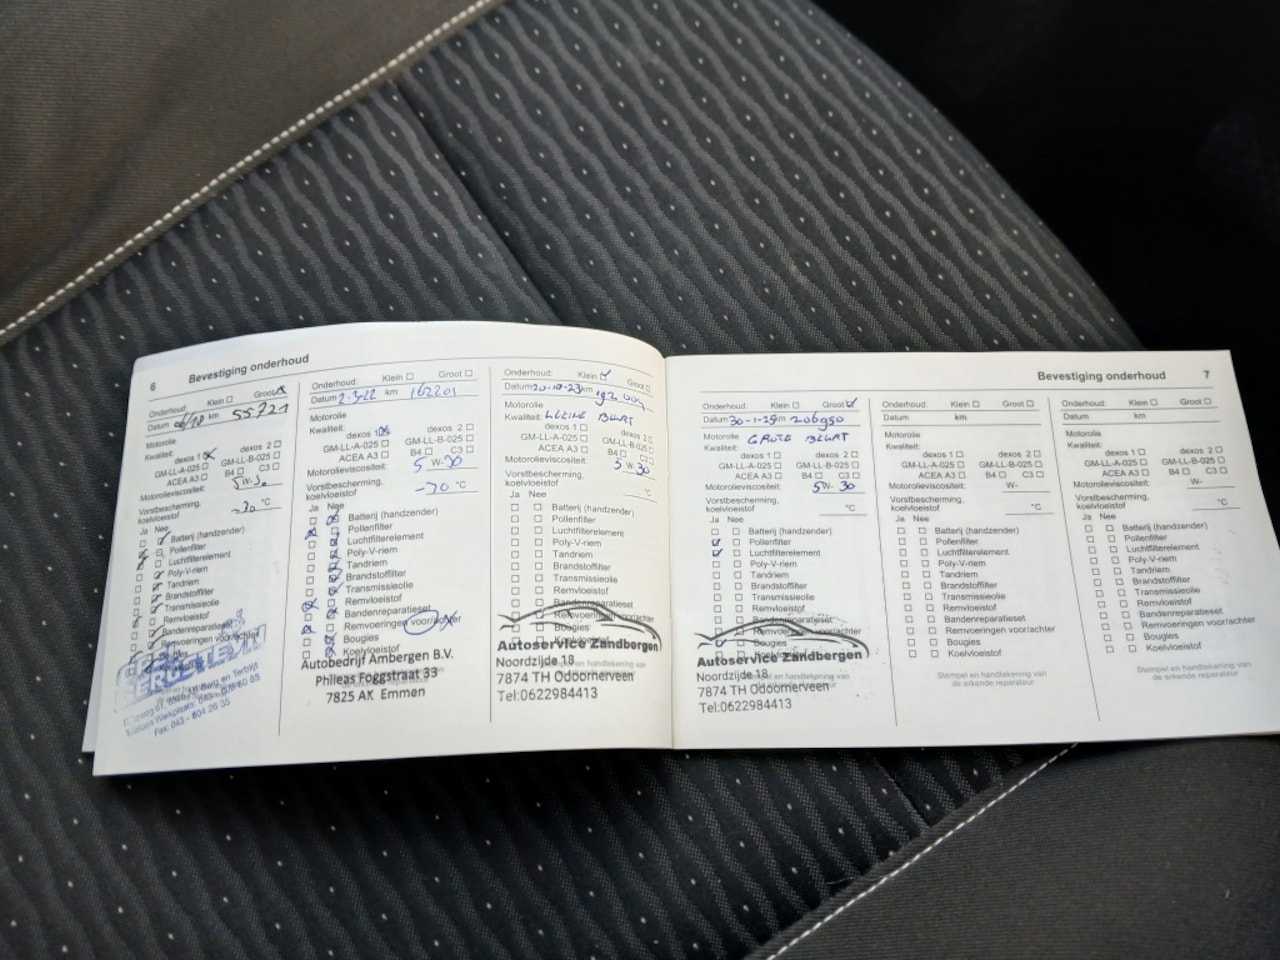 6 Bevestiging onderhoud
Onderhoud: Klein Groot
Datum km 55721
Motorolie
Kwaliteit: dexos 1 dexos 2
GM-LL-A-025 GM-LL-B-025
ACEA A3 B4 C3
Motorolieviscositeit: 5W-30
Vorstbescherming, koelvloeistof -30 °C
Ja Nee
Batterij (handzender)
Pollenfilter
Luchtfilterelement
Poly-V-riem
Tandriem
Brandstoffilter
Transmissieolie
Remvloeistof
Bandenreparatieset
Remvoeringen voor/achter
Onderhoud: Klein Groot
Datum 2-3-22 km 162201
Motorolie
Kwaliteit:
dexos 1 dexos 2
GM-LL-A-025 GM-LL-B-025
ACEA A3 B4 C3
Motorolieviscositeit: 5 W-30
Vorstbescherming,
koelvloeistof -30 °C
Ja Nee
Batterij (handzender)
Pollenfilter
Luchtfilterelement
Poly-V-riem
Tandriem
Brandstoffilter
Transmissieolie
Remvloeistof
Bandenreparatieset
Remvoeringen voor/achter
Bougies
Koelvloeistof
Autobedrijf Ambergen B.V.
Phileas Foggstraat 33
7825 AK Emmen
Onderhoud: Klein Groot
Datum 20-10-23 km
Motorolie
Kwaliteit: KLEINE BEURT
dexos 1 dexos 2
GM-LL-A-025 GM-LL-B-025
ACEA A3 B4 C3
Motorolieviscositeit: 5 W-30
Vorstbescherming,
koelvloeistof °C
Ja Nee
Batterij (handzender)
Pollenfilter
Luchtfilterelement
Poly-V-riem
Tandriem
Brandstoffilter
Transmissieolie
Remvloeistof
Bandenreparatieset
Remvoeringen voor/achter
Bougies
Koelvloeistof
Autoservice Zandbergen
Noordzijde 18
7874 TH Odoornerveen
Tel:0622984413
Bevestiging onderhoud 7
Onderhoud: Klein Groot
Datum 30-1-25 km 206950
Motorolie GROTE BEURT
Kwaliteit:
dexos 1 dexos 2
GM-LL-A-025 GM-LL-B-025
ACEA A3 B4 C3
Motorolieviscositeit: 5W-30
Vorstbescherming,
koelvloeistof °C
Ja Nee
Batterij (handzender)
Pollenfilter
Luchtfilterelement
Poly-V-riem
Tandriem
Brandstoffilter
Transmissieolie
Remvloeistof
Bandenreparatieset
Remvoeringen voor/achter
Bougies
Koelvloeistof
Autoservice Zandbergen
Noordzijde 18
7874 TH Odoornerveen
Tel:0622984413
Onderhoud: Klein Groot
Datum km
Motorolie
Kwaliteit:
dexos 1 dexos 2
GM-LL-A-025 GM-LL-B-025
ACEA A3 B4 C3
Motorolieviscositeit: W-
Vorstbescherming,
koelvloeistof °C
Ja Nee
Batterij (handzender)
Pollenfilter
Luchtfilterelement
Poly-V-riem
Tandriem
Brandstoffilter
Transmissieolie
Remvloeistof
Bandenreparatieset
Remvoeringen voor/achter
Bougies
Koelvloeistof
Stempel en handtekening van
de erkende reparateur
Onderhoud: Klein Groot
Datum km
Motorolie
Kwaliteit:
dexos 1 dexos 2
GM-LL-A-025 GM-LL-B-025
ACEA A3 B4 C3
Motorolieviscositeit: W-
Vorstbescherming,
koelvloeistof °C
Ja Nee
Batterij (handzender)
Pollenfilter
Luchtfilterelement
Poly-V-riem
Tandriem
Brandstoffilter
Transmissieolie
Remvloeistof
Bandenreparatieset
Remvoeringen voor/achter
Bougies
Koelvloeistof
Stempel en handtekening van
de erkende reparateur